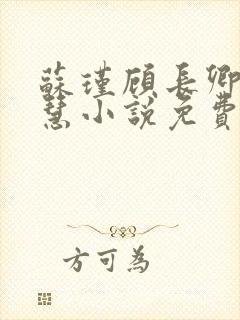 蘇瑾顾長卿
慧小說免費
方可為